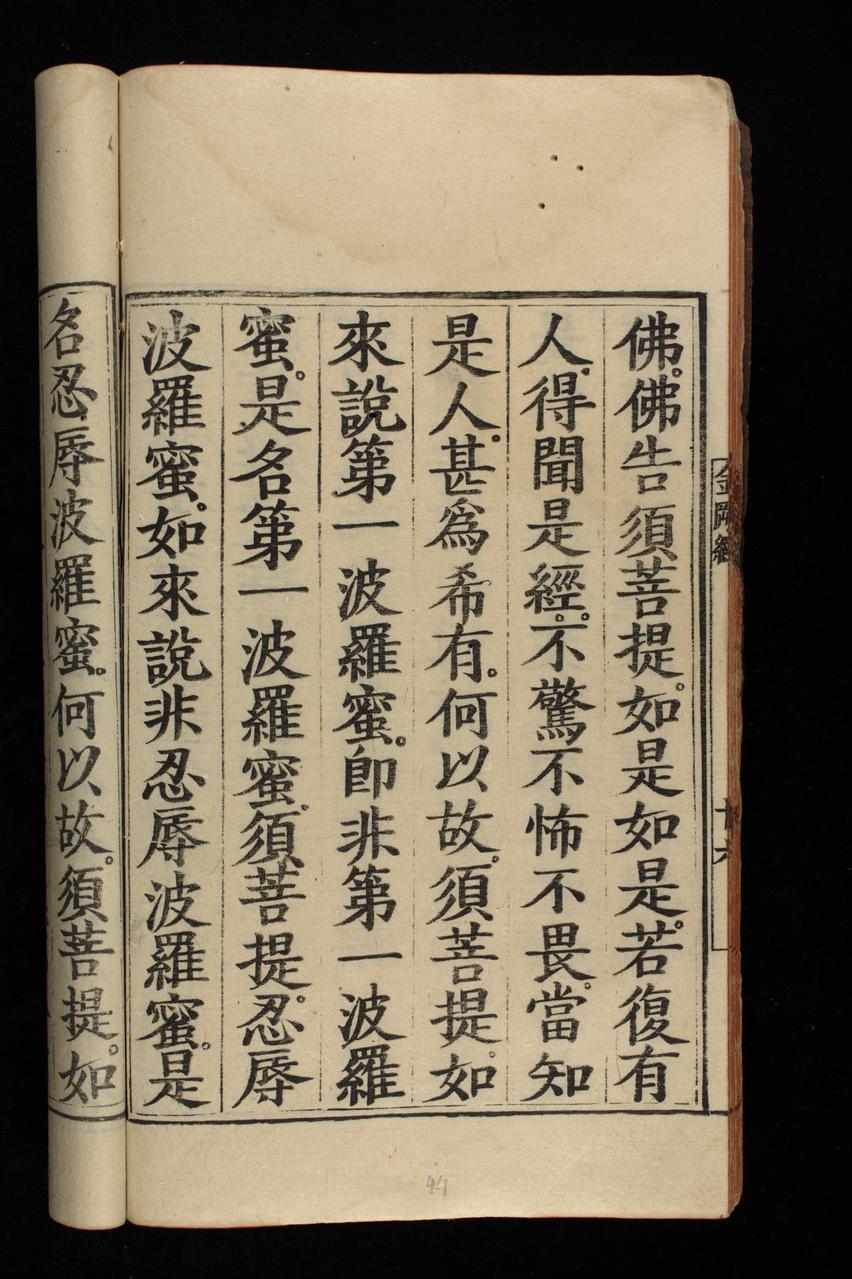 佛。佛告須菩提。如是如是。若復有
人。得聞是經。不驚不怖不畏。當知
是人。甚爲希有。何以故。須菩提。如
來說第一波羅蜜。即非第一波羅
蜜。是名第一波羅蜜。須菩提。忍辱
波羅蜜。如來說非忍辱波羅蜜。是
名忍辱波羅蜜。何以故。須菩提。如
金剛經
廿六
44